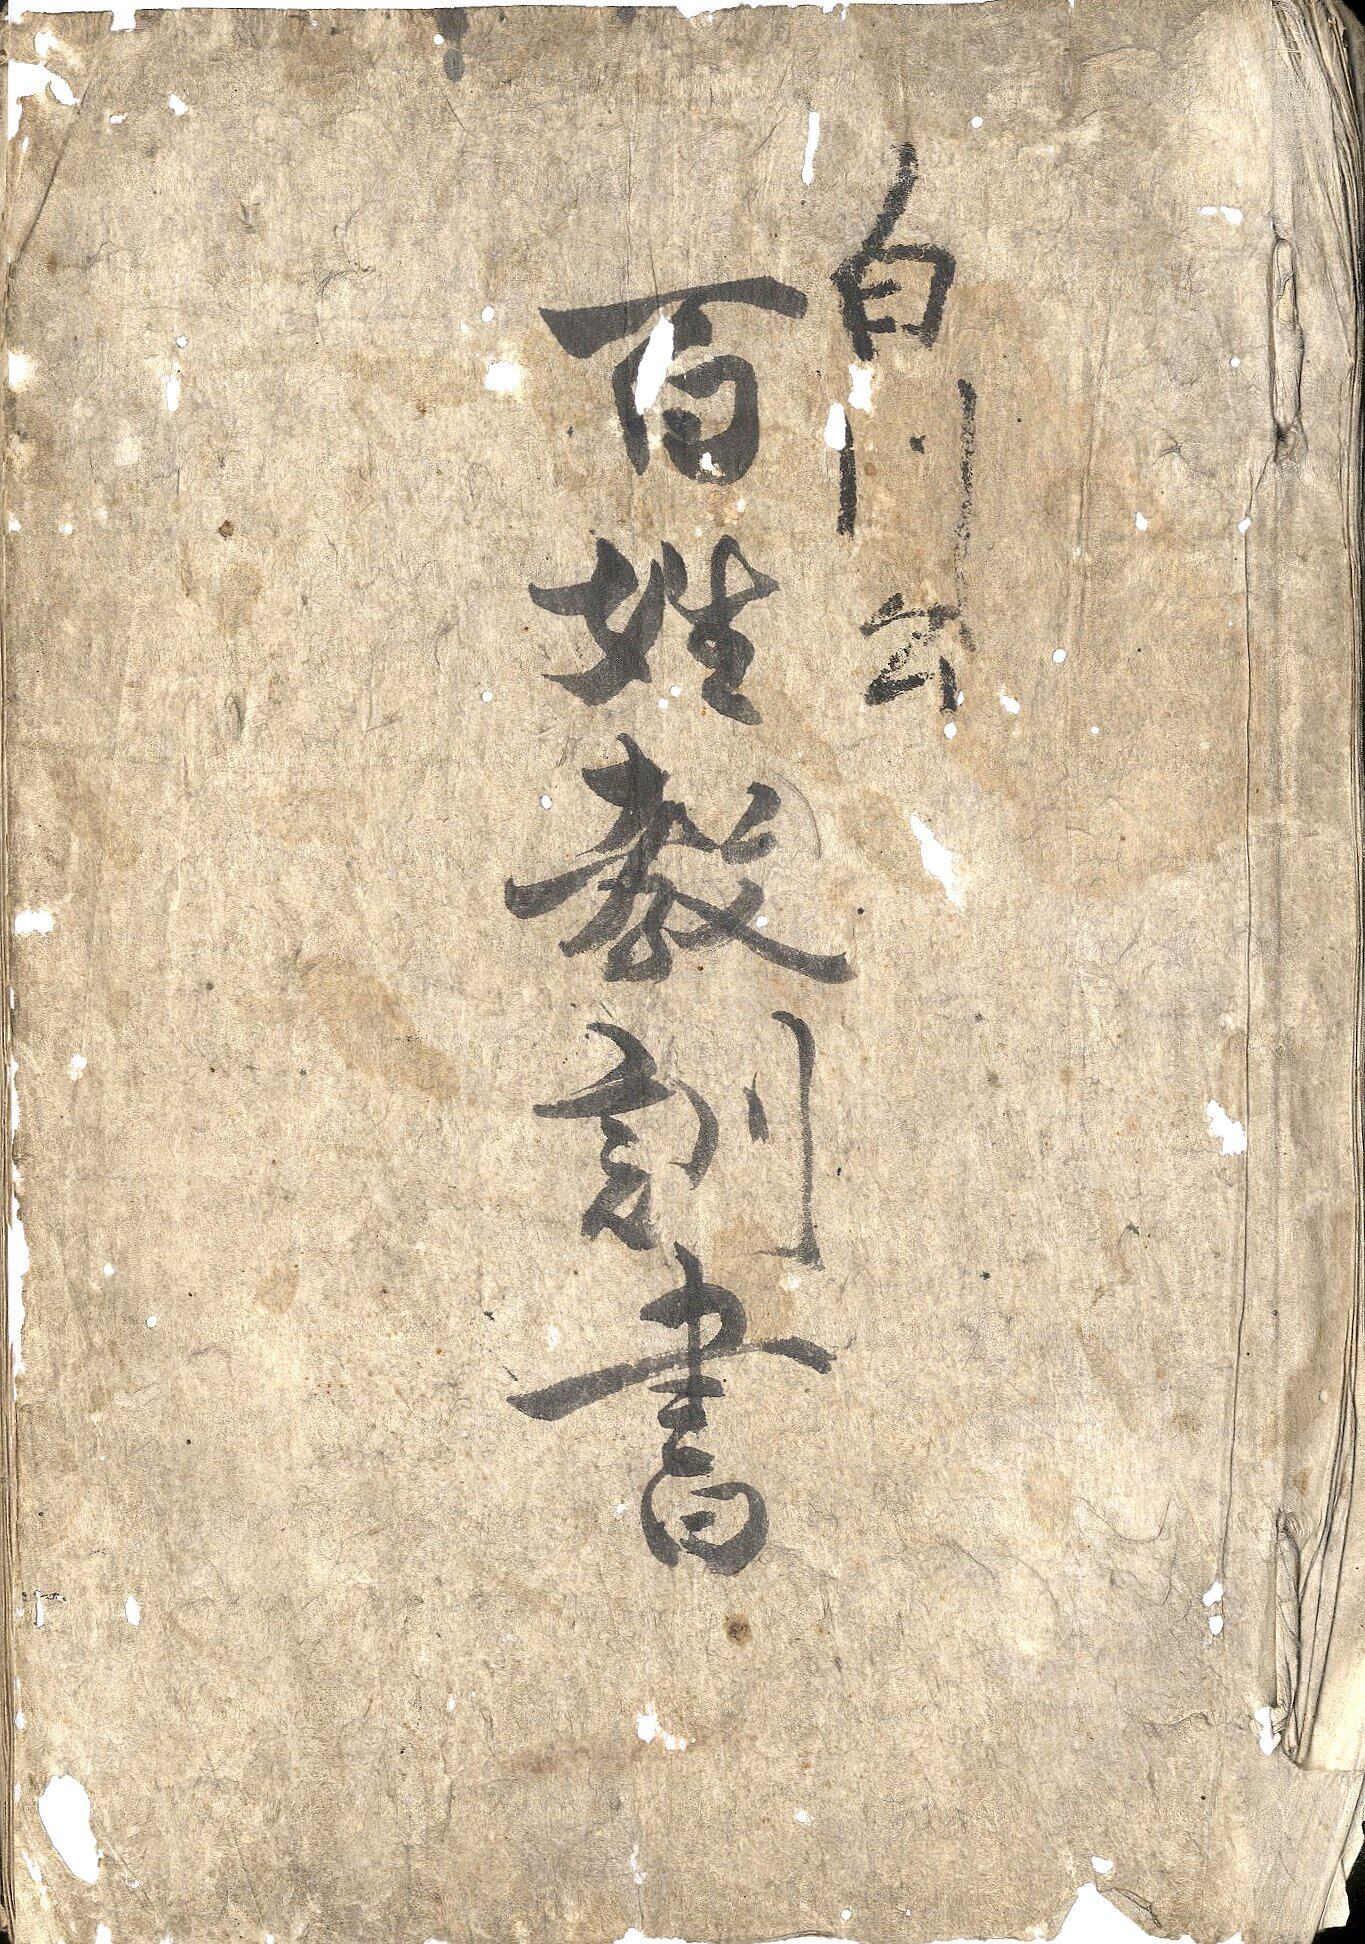 白川公
百姓教訓書